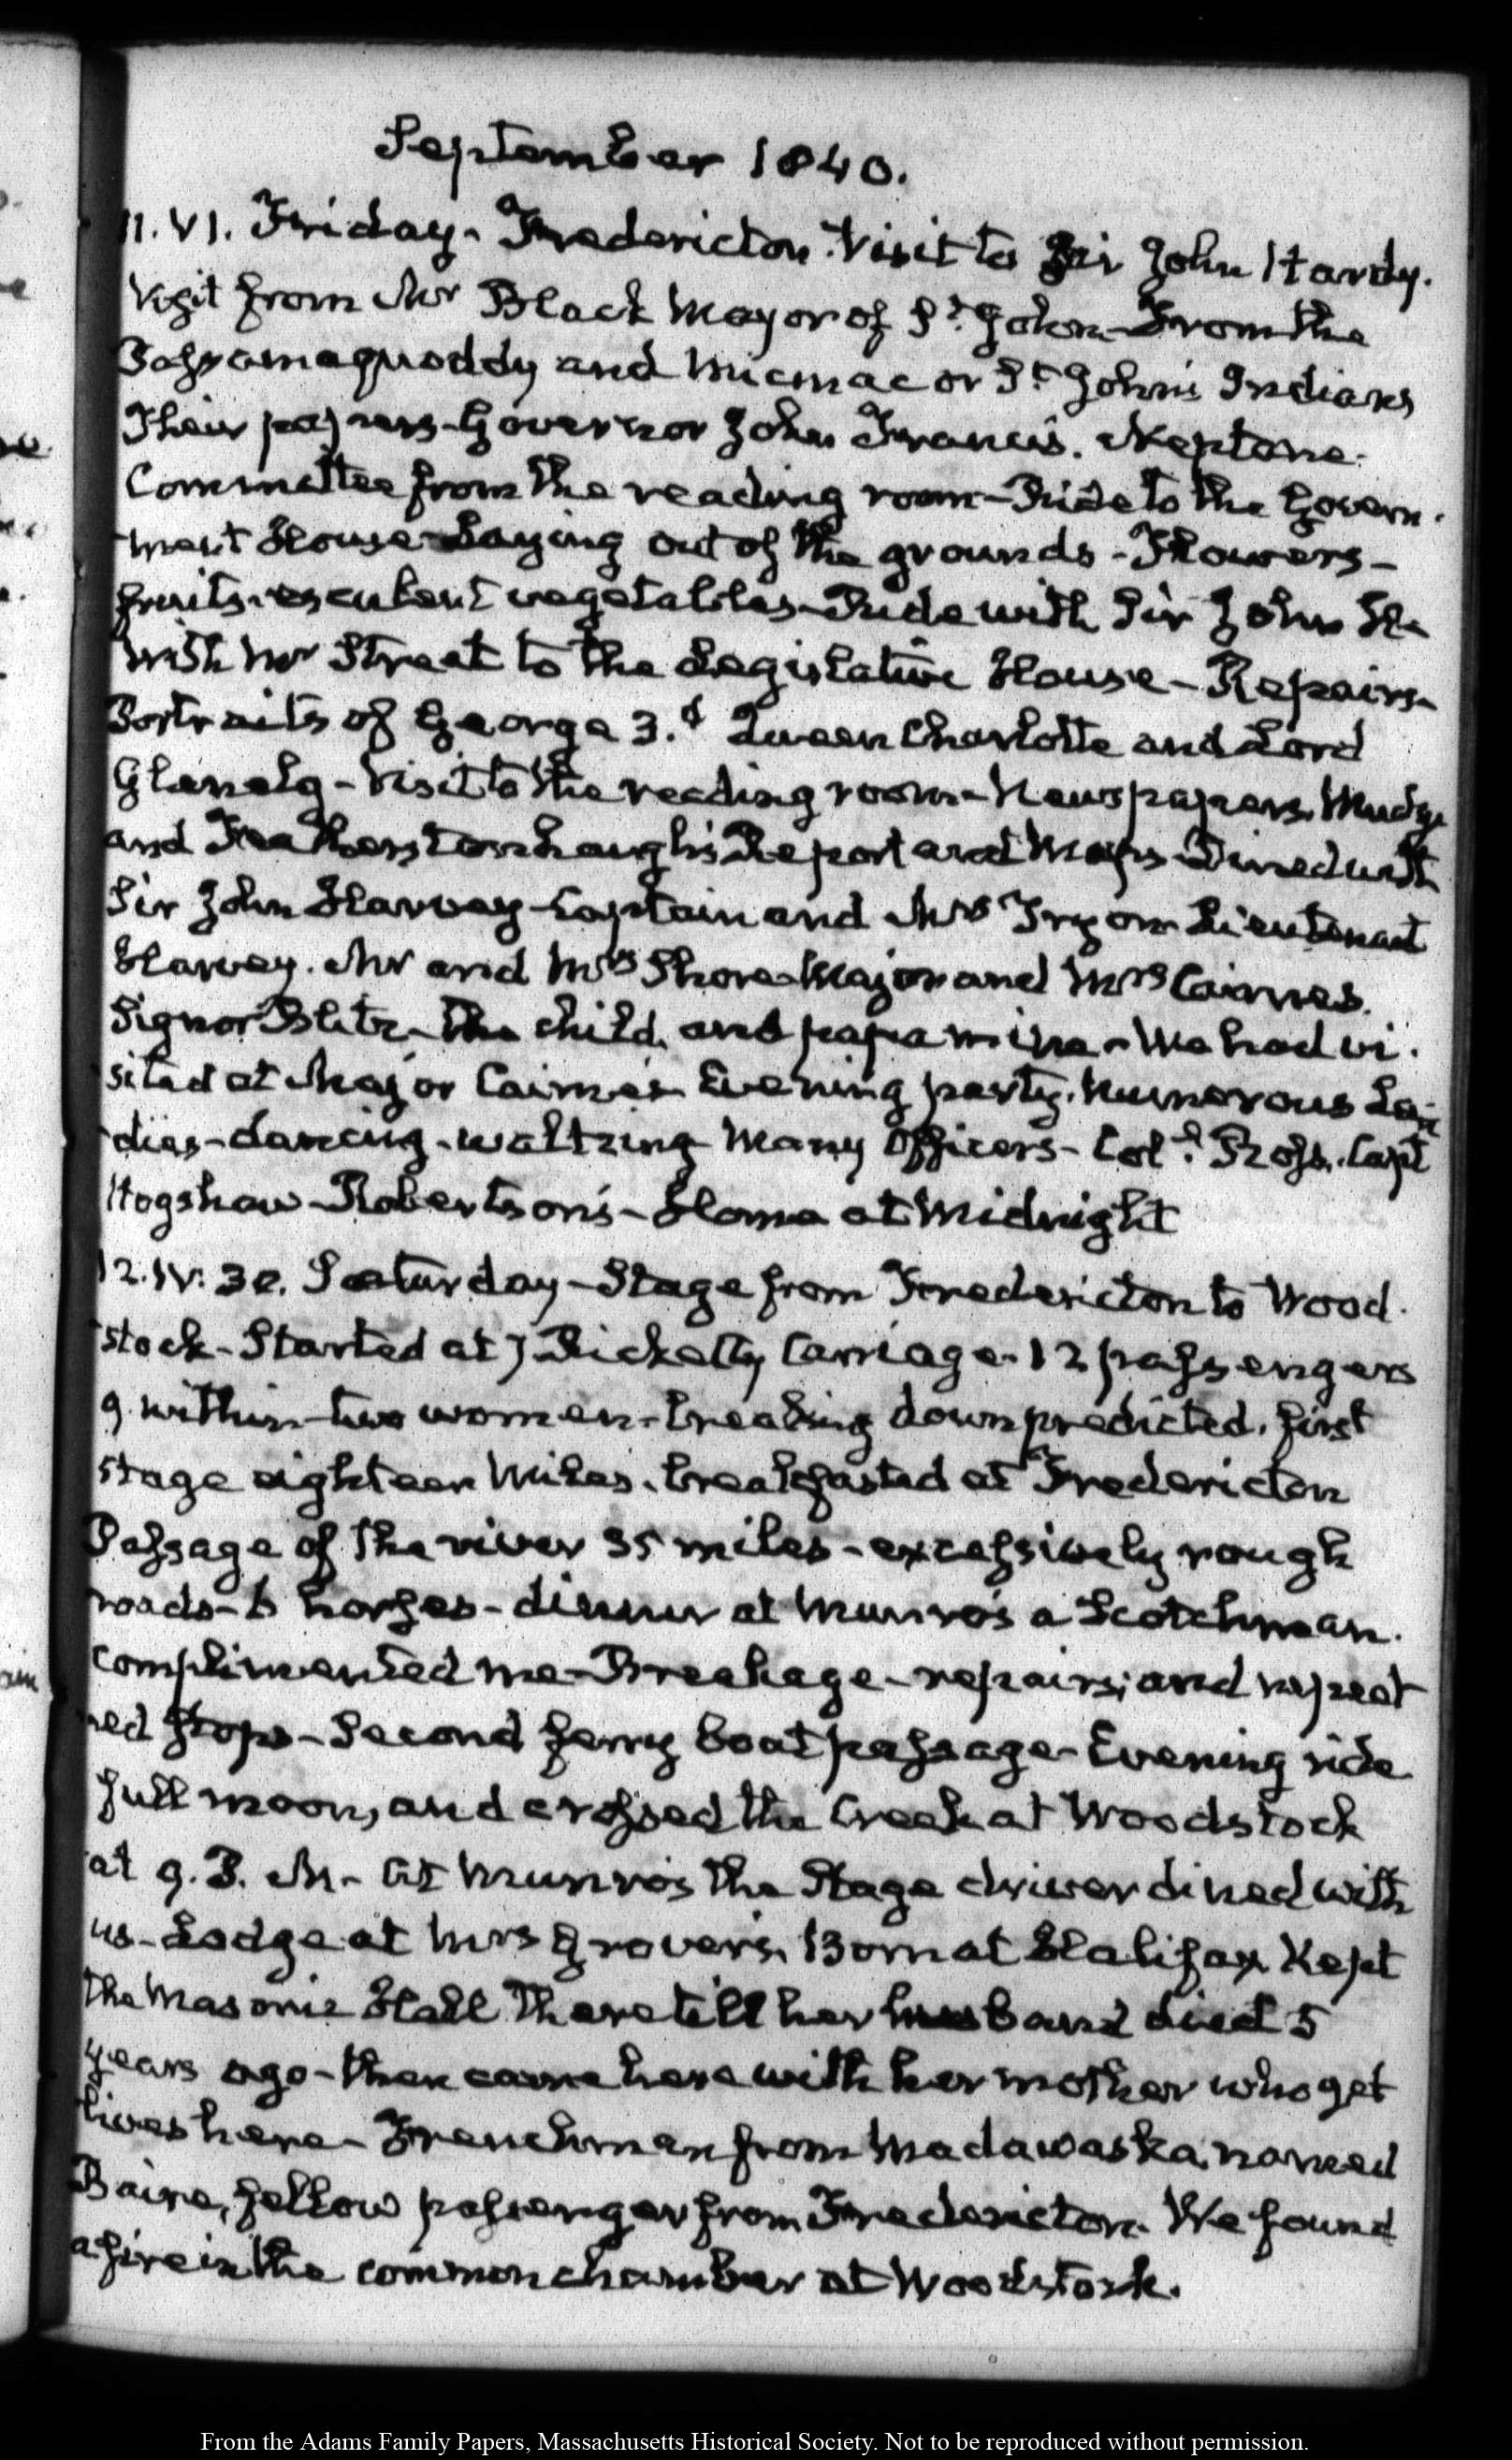 September 1840.
11. VI. Friday - Fredericton. Visit to Sir John Hardy.
Visit from Mr Black Mayor of St. John - From the
Passamaquoddy and Micmac or St. John's Indians
Their papers - Governor John Francis. Neptune.
Committee from the reading room - Ride to the Govern.
ment House - Laying out of the grounds - Flowers -
fruits, esculent vegetables - Ride with Sir John H.
with Mr Street to the Legislative House - Repairs -
Portraits of George 3.d Queen Charlotte and Lord
Glenelg - Visit to the reading room - Newspapers. Mudge
and Featherstonhaugh's Report and Maps - Dined with
Sir John Harvey - Captain and Mrs Tryon Lieutenant
Harvey. Mr and Mrs Shore - Major and Mrs Cairnes.
Signor Blitz - The child, and papa mine - We had vi.
sited at Major Cairnes's Evening party. Numerous La-
dies - dancing - waltzing Many Officers - Col. Ross. Capt
Hogshaw - Robertson's - Home at Midnight
12. IV: 30. Saturday - Stage from Fredericton to Wood.
stock - Started at 7 Rickety Carriage - 12 passengers
9 within - two women - breaking down predicted. first
stage eighteen Miles. breakfasted at Fredericton
Passage of the river 35 miles - excessively rough
roads - 6 horses - dinner at Munro's a Scotchman.
complimented me - Breakage - repairs; and repeat
ed stops - Second ferry boat passage - Evening ride
full moon, and crossed the Creek at Woodstock
at 9. P. M. - At Munro's the Stage driver dined with
us - Lodge at Mrs Grover's. Born at Halifax Kept
the Masonic Hall there till her husband died 5
years ago - then came here with her mother who yet
lives here - Frenchman from Madawaska, named
fellow passenger from Fredericton. We found
a fire in the common chamber at Woodstock.
From the Adams Family Papers, Massachusetts Historical Society. Not to be reproduced without permission.